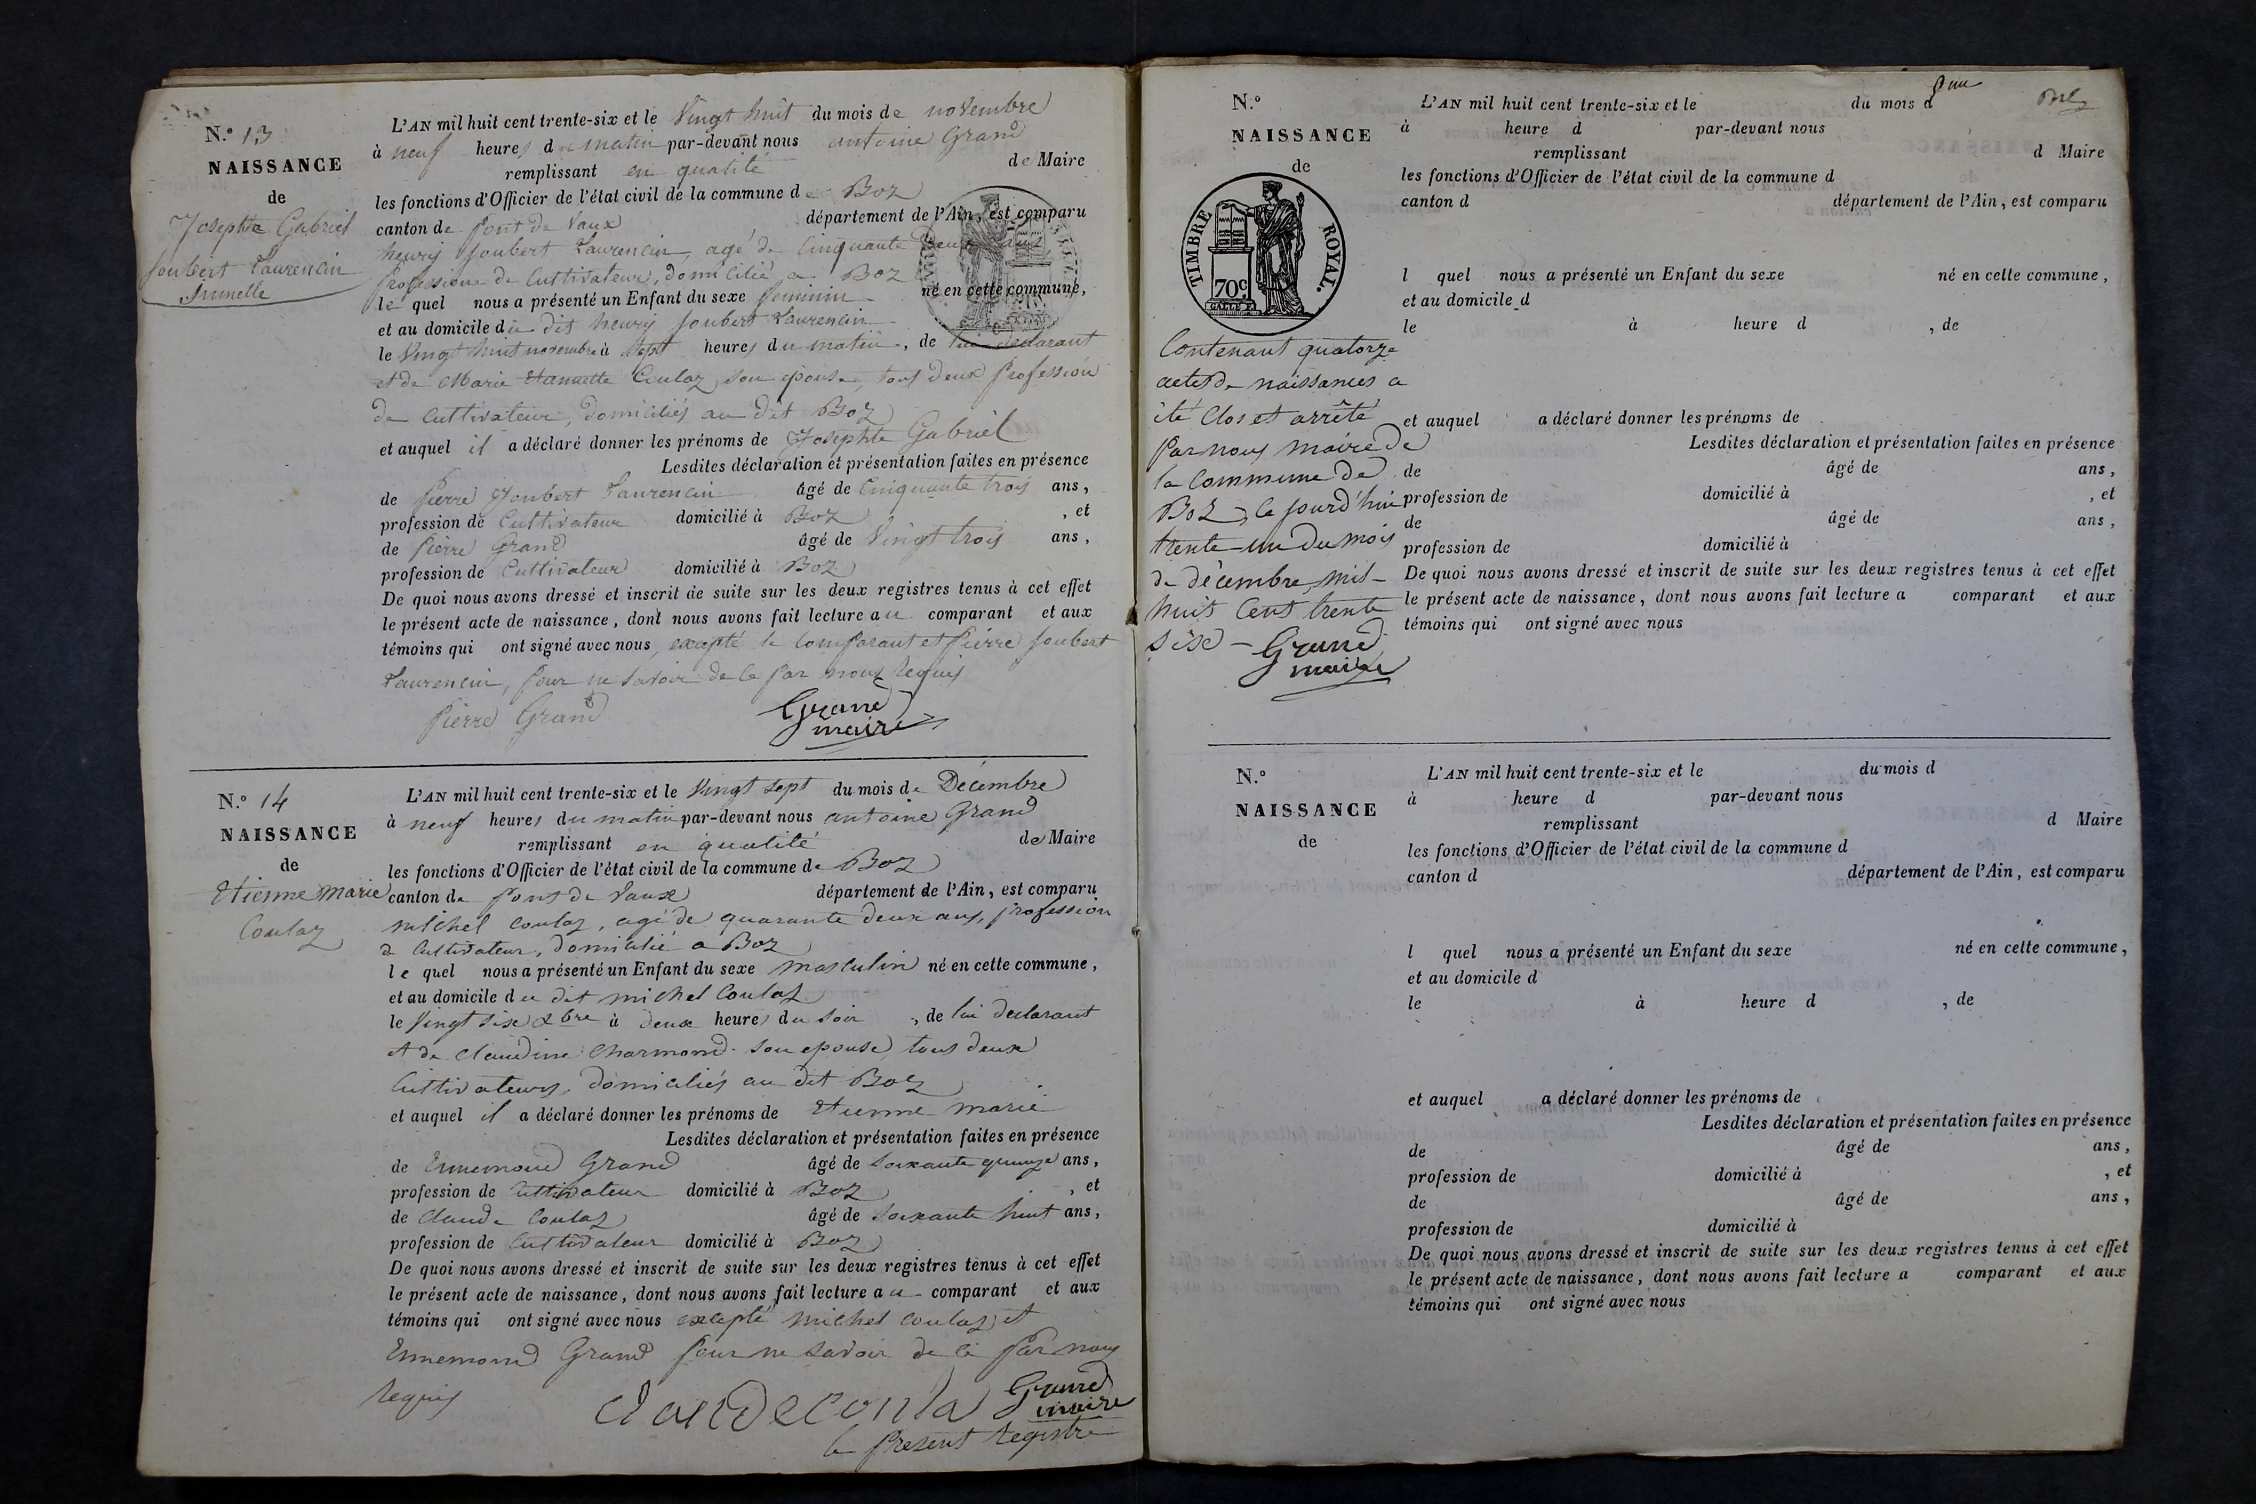 N.º 13
NAISSANCE
de
Josephte Gabriel
Joubert Laurencin
L'AN mil huit cent trente-six et le Vingt huit du mois de novembre
à neuf heures du matin par-devant nous antoine Grand
remplissant en qualité de Maire
les fonctions d'Officier de l'état civil de la commune de Boz
canton de Pont de Vaux département de l'Ain, est comparu
henry Joubert Laurencin, agé de Cinquante Deux ans
Profession de Cultivateur, domicilié a Boz
le quel nous a présenté un Enfant du sexe feminin né en cette commune,
et au domicile du dit henry Joubert Laurencin
le Vingt huit novembre à sept heures du matin, de lui declarant
et de Marie Coulaz son epouse, tous deux Profession
de Cultivateur, domiciliés au dit Boz
et auquel il a déclaré donner les prénoms de Josephte Gabriel
Lesdites déclaration et présentation faites en présence
de Pierre Joubert Laurencin âgé de Cinquante trois ans,
profession de Cultivateur domicilié à Boz, et
de Pierre Grand âgé de Vingt trois ans,
profession de Cultivateur domicilié à Boz
De quoi nous avons dressé et inscrit de suite sur les deux registres tenus à cet effet
le présent acte de naissance, dont nous avons fait lecture au comparant et aux
témoins qui ont signé avec nous, excepté le Comparant et Pierre Joubert
Laurencin, Pour ne Savoir de ce Par nous Requis
Pierre Grand Grand
maire
N.º 14
NAISSANCE
de
Etienne marie
Coulaz
L'AN mil huit cent trente-six et le Vingt sept du mois de Décembre
à neuf heures du matin par-devant nous antoine Grand
remplissant en qualité de Maire
les fonctions d'Officier de l'état civil de la commune de Boz
canton de Pont de Vaux département de l'Ain, est comparu
michel Coulaz, agé de quarante deux ans, profession
de Cultivateur, domicilié a Boz
le quel nous a présenté un Enfant du sexe masculin né en cette commune,
et au domicile du dit michel Coulaz
le Vingt Sixe Xbre à deux heures du soir, de lui declarant
et de Claudine Charmond son epouse, tous deux
Cultivateurs, domiciliés au dit Boz
et auquel il a déclaré donner les prénoms de Etienne marie
Lesdites déclaration et présentation faites en présence
de Ennemond Grand âgé de Soixante quinze ans,
profession de Cultivateur domicilié à Boz, et
de Claude Coulaz âgé de Soixante huit ans,
profession de Cultivateur domicilié à Boz
De quoi nous avons dressé et inscrit de suite sur les deux registres tenus à cet effet
le présent acte de naissance, dont nous avons fait lecture au comparant et aux
témoins qui ont signé avec nous excepté michel Coulaz et
Ennemond Grand Pour ne Savoir de ce Par nous
Requis
Claude Coula Grand
maire
le Present Registre
N.º
NAISSANCE
de
TIMBRE ROYAL.
70c
Contenant quatorze
actes de naissances a
été Clos et arrêté
Par nous maire de
la Commune de
Boz, ce Jourd'hui
trente-un du mois
de décembre mil-
huit Cent trente
Sixe - Grand
maire
L'AN mil huit cent trente-six et le du mois d
à heure d par-devant nous
remplissant d Maire
les fonctions d'Officier de l'état civil de la commune d
canton d département de l'Ain, est comparu
l quel nous a présenté un Enfant du sexe né en cette commune,
et au domicile d
le à heure d , de
et auquel a déclaré donner les prénoms de
Lesdites déclaration et présentation faites en présence
de âgé de ans,
profession de domicilié à , et
de âgé de ans,
profession de domicilié à
De quoi nous avons dressé et inscrit de suite sur les deux registres tenus à cet effet
le présent acte de naissance, dont nous avons fait lecture a comparant et aux
témoins qui ont signé avec nous
N.º
NAISSANCE
de
L'AN mil huit cent trente-six et le du mois d
à heure d par-devant nous
remplissant d Maire
les fonctions d'Officier de l'état civil de la commune d
canton d département de l'Ain, est comparu
l quel nous a présenté un Enfant du sexe né en cette commune,
et au domicile d
le à heure d , de
et auquel a déclaré donner les prénoms de
Lesdites déclaration et présentation faites en présence
de âgé de ans,
profession de domicilié à , et
de âgé de ans,
profession de domicilié à
De quoi nous avons dressé et inscrit de suite sur les deux registres tenus à cet effet
le présent acte de naissance, dont nous avons fait lecture a comparant et aux
témoins qui ont signé avec nous